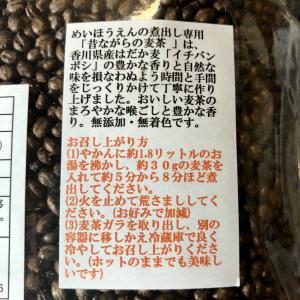 めいほうえんの煮出し専用
「昔ながらの麦茶 」は、
香川県産はだか麦「イチバン
ボシ」の豊かな香りと自然な
味を損なわぬよう時間と手間
をじっくりかけて丁寧に作り
上げました。おいしい麦茶の
まろやかな喉ごしと豊かな香
り。無添加・無着色です。
お召し上がり方
(1)やかんに約1.8リットルのお
湯を沸かし、約３０gの麦茶を
入れて約５分から８分ほど煮出
してください。
(2)火を止めて荒さまししてく
ださい。(お好みで加減)
(3)麦茶ガラを取り出し、別の
容器に移しかえ冷蔵庫で良く
冷やしてお召し上がりくださ
い。(ホットのままでも美味し
いです)